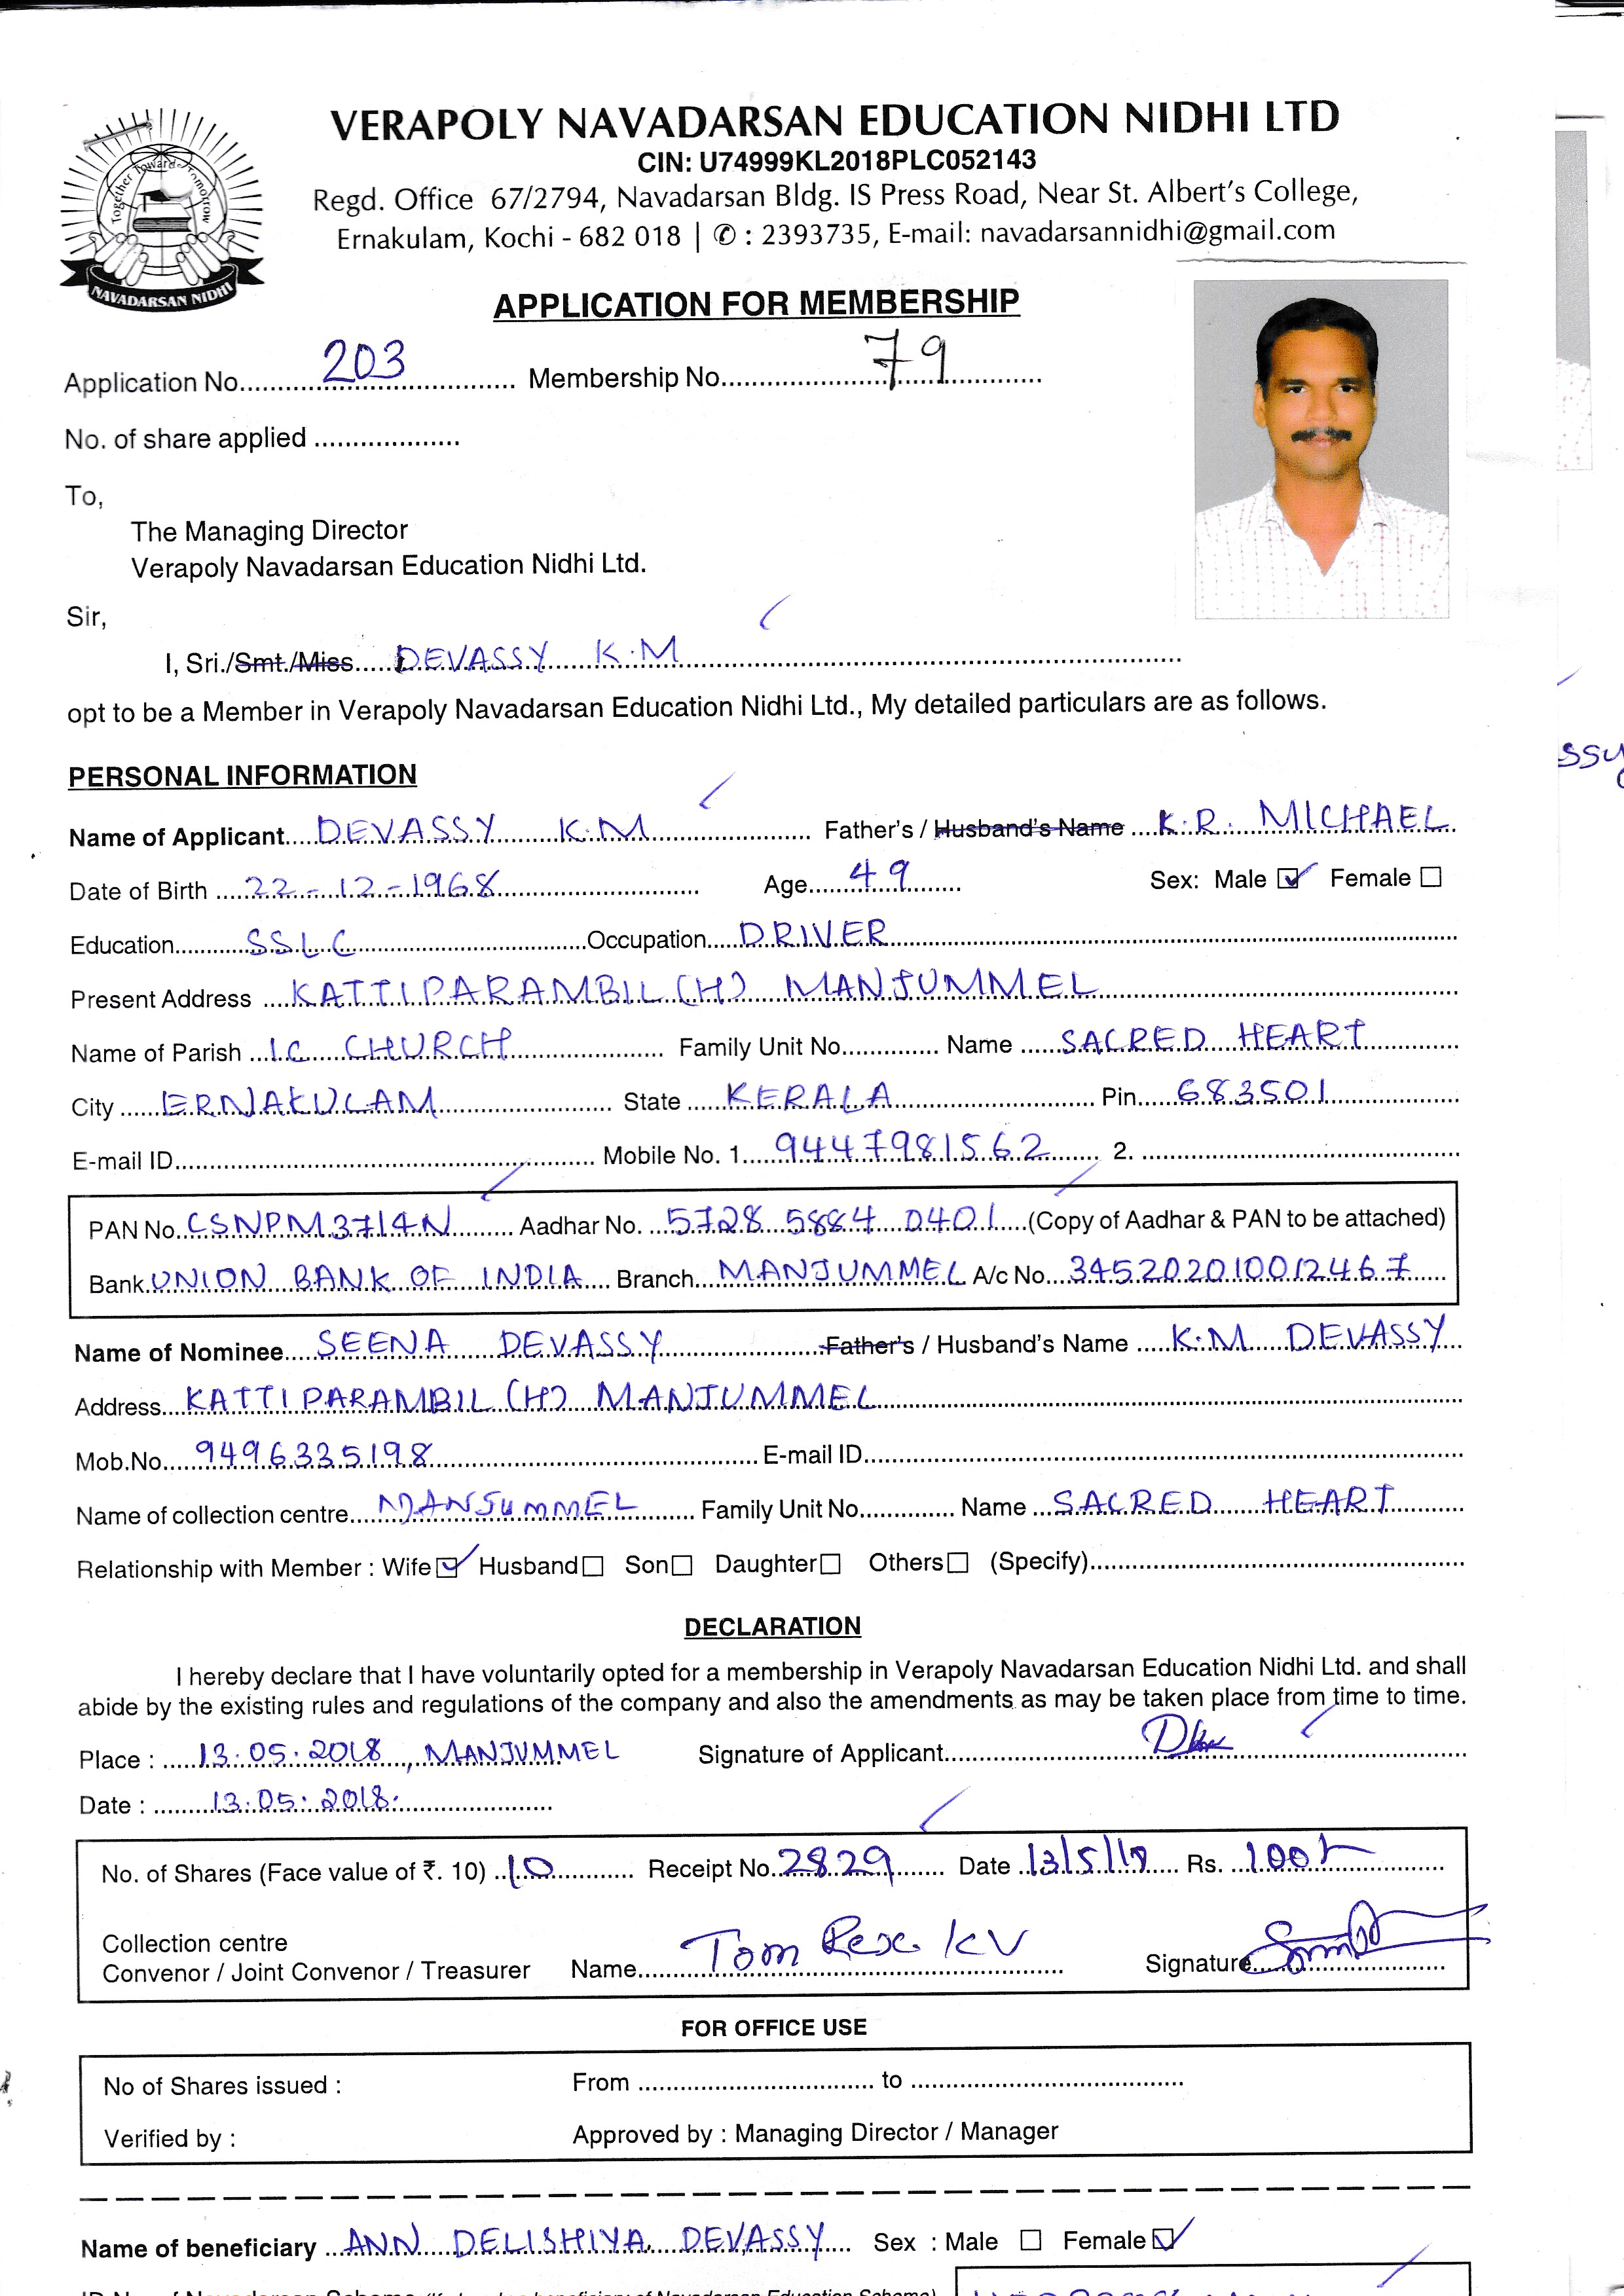 Together Towards Tomorrow
NAVADARSAN NIDHI
VERAPOLY NAVADARSAN EDUCATION NIDHI LTD
CIN: U74999KL2018PLC052143
Regd. Office 67/2794, Navadarsan Bldg. IS Press Road, Near St. Albert's College,
Ernakulam, Kochi - 682 018 | ✆ : 2393735, E-mail: navadarsannidhi@gmail.com
APPLICATION FOR MEMBERSHIP
Application No. 203 Membership No. 79
No. of share applied
To,
The Managing Director
Verapoly Navadarsan Education Nidhi Ltd.
Sir,
I, Sri./Smt./Miss DEVASSY K.M
opt to be a Member in Verapoly Navadarsan Education Nidhi Ltd., My detailed particulars are as follows.
ssy
PERSONAL INFORMATION
Name of Applicant DEVASSY K.M Father's / Husband's Name K.R. MICHAEL
Date of Birth 22-12-1968 Age 49 Sex: Male ☑ Female ☐
Education SSLC Occupation DRIVER
Present Address KATTIPARAMBIL (H) MANJUMMEL
Name of Parish I.C CHURCH Family Unit No. Name SACRED HEART
City ERNAKULAM State KERALA Pin 683501
E-mail ID Mobile No. 1. 9447981562 2.
PAN No. CSNPM3714N Aadhar No. 5728 5884 0401 (Copy of Aadhar & PAN to be attached)
Bank UNION BANK OF INDIA Branch MANJUMMEL A/c No. 345202010012467
Name of Nominee SEENA DEVASSY Father's / Husband's Name K.M DEVASSY
Address KATTIPARAMBIL (H) MANJUMMEL
Mob.No. 9496335198 E-mail ID
Name of collection centre MANJUMMEL Family Unit No. Name SACRED HEART
Relationship with Member : Wife ☑ Husband ☐ Son ☐ Daughter ☐ Others ☐ (Specify)
DECLARATION
I hereby declare that I have voluntarily opted for a membership in Verapoly Navadarsan Education Nidhi Ltd. and shall
abide by the existing rules and regulations of the company and also the amendments as may be taken place from time to time.
Place : 13.05.2018, MANJUMMEL Signature of Applicant
Date : 13.05.2018.
No. of Shares (Face value of ₹. 10) 10 Receipt No. 2829 Date 13/5/ Rs. 100/-
Collection centre
Convenor / Joint Convenor / Treasurer Name Tom Rex KV Signature
FOR OFFICE USE
No of Shares issued : From to
Verified by : Approved by : Managing Director / Manager
Name of beneficiary ANN DELISHIYA DEVASSY Sex : Male ☐ Female ☑